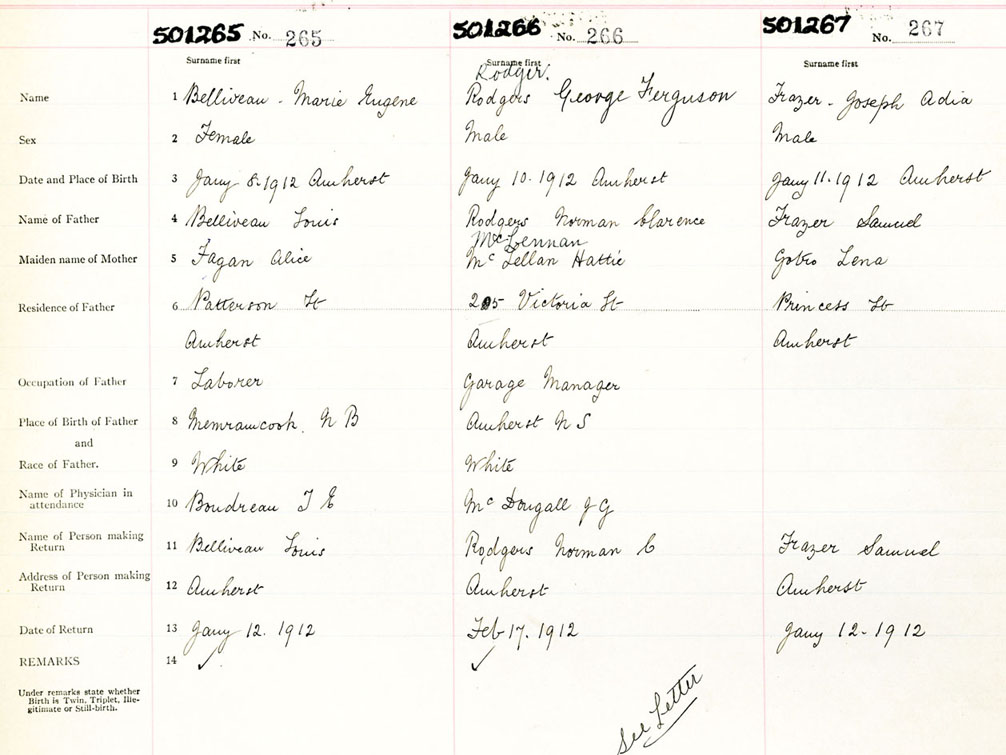 501265 No. 265 501266 No. 266 501267 No. 267
Surname first Surname first Surname first
Rodger.
Name 1 Belliveau - Marie Eugene Rodgers George Ferguson Frazer - Joseph Adia
Sex 2 Female Male Male
Date and Place of Birth 3 Jany 8. 1912 Amherst Jany 10. 1912 Amherst Jany 11. 1912 Amherst
Name of Father 4 Belliveau Louis Rodgers Norman Clarence Frazer Samuel
McLennan
Maiden name of Mother 5 Fagan Alice McLellan Hattie Gotro Lena
Residence of Father 6 Patterson St 205 Victoria St Princess St
Amherst Amherst Amherst
Occupation of Father 7 Laborer Garage Manager
Place of Birth of Father 8 Memramcook. N B Amherst N S
and
Race of Father. 9 White White
Name of Physician in
attendance 10 Boudreau T E McDougall J G
Name of Person making
Return 11 Belliveau Louis Rodgers Norman C Frazer Samuel
Address of Person making
Return 12 Amherst Amherst Amherst
Date of Return 13 Jany 12. 1912 Feb 17. 1912 Jany 12 - 1912
REMARKS 14 ✓ ✓
Under remarks state whether
Birth is Twin, Triplet, Ille-
gitimate or Still-birth.
See Letter